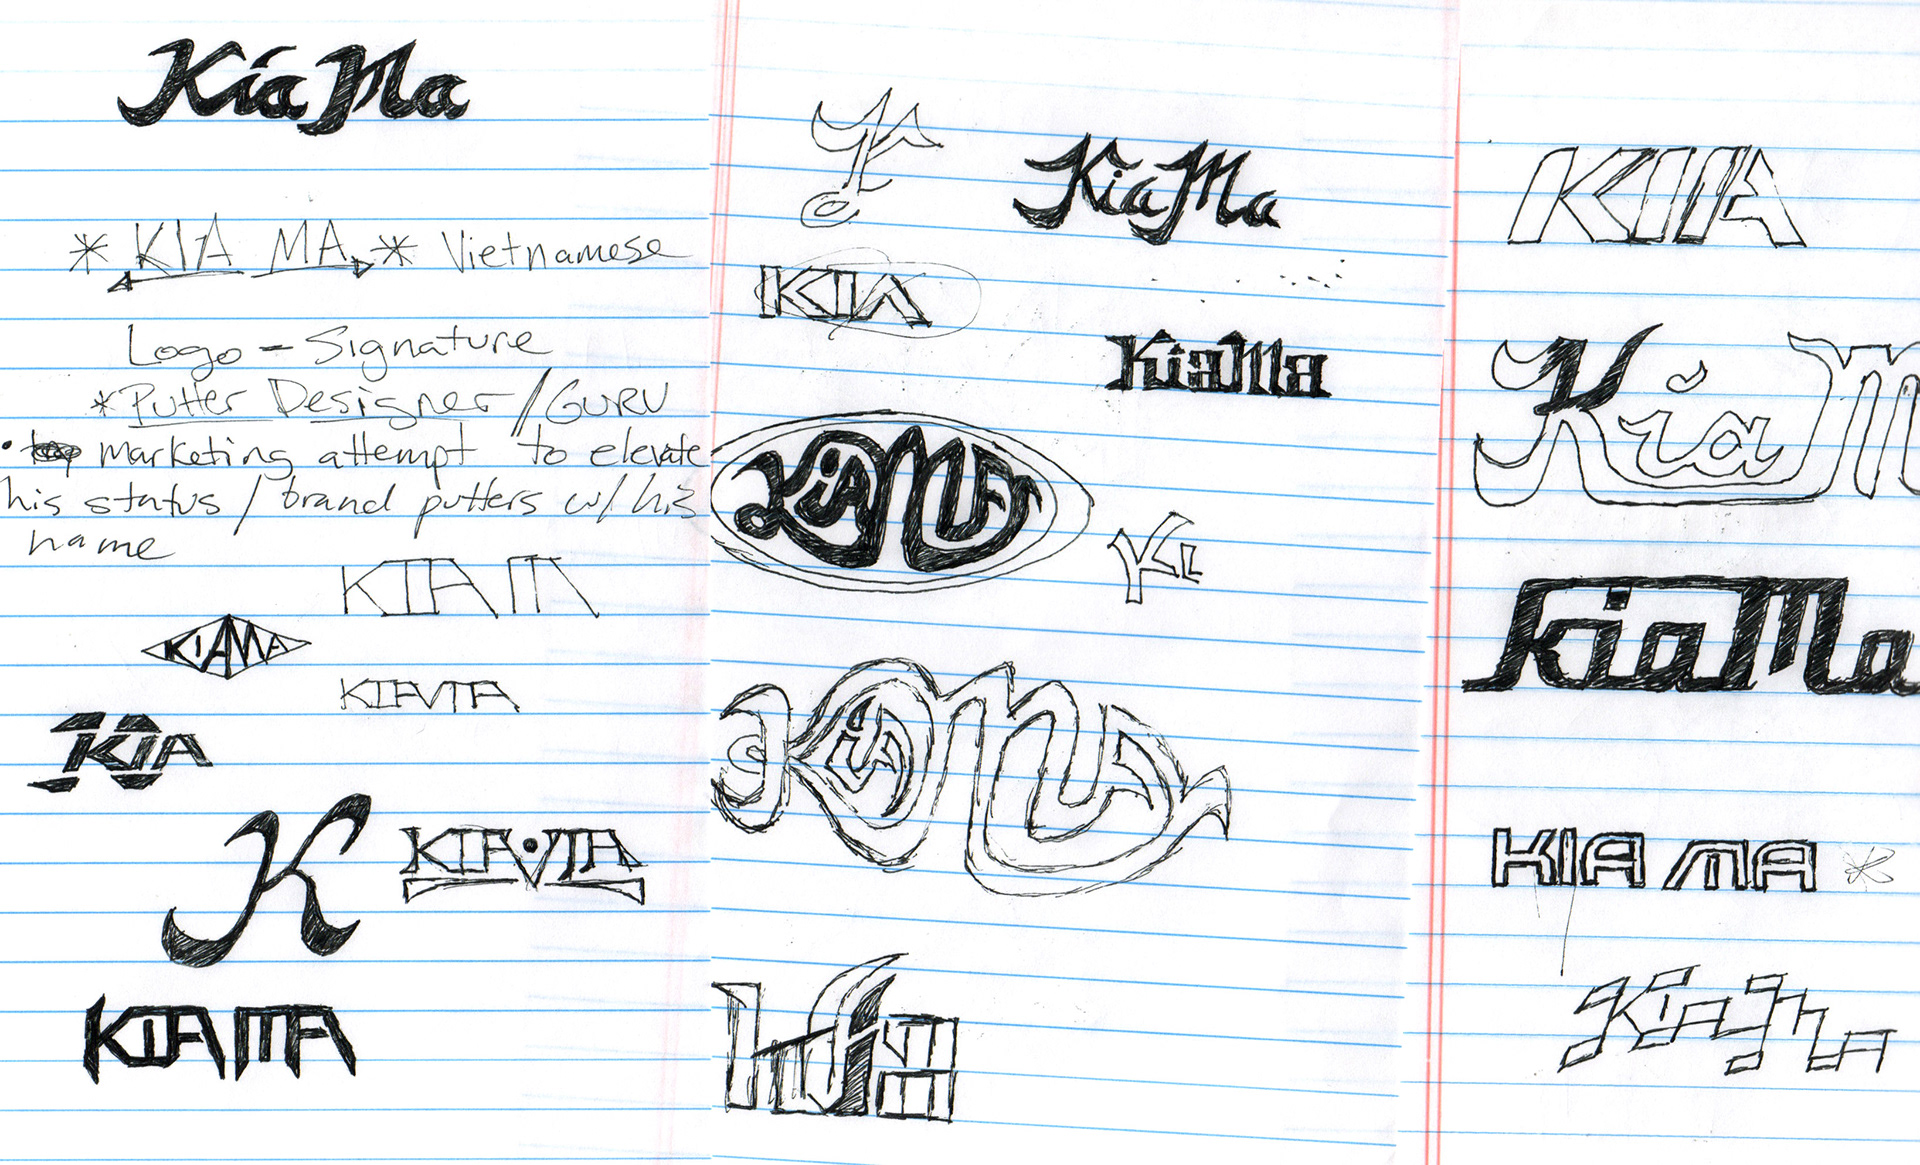 Kia Ma
* KIA MA * Vietnamese
Logo - Signature
* Putter Designer / GURU
• marketing attempt to elevate
his status / brand putters w/ his
name
KIA M
KIAMA
KIAMA
KIA
K
KIA MA
KIAMA
Kia Ma
KIA
KiaMa
KIAMA
KiAMA
KIA
Kia M
kiaMa
KIA MA
KiaMa